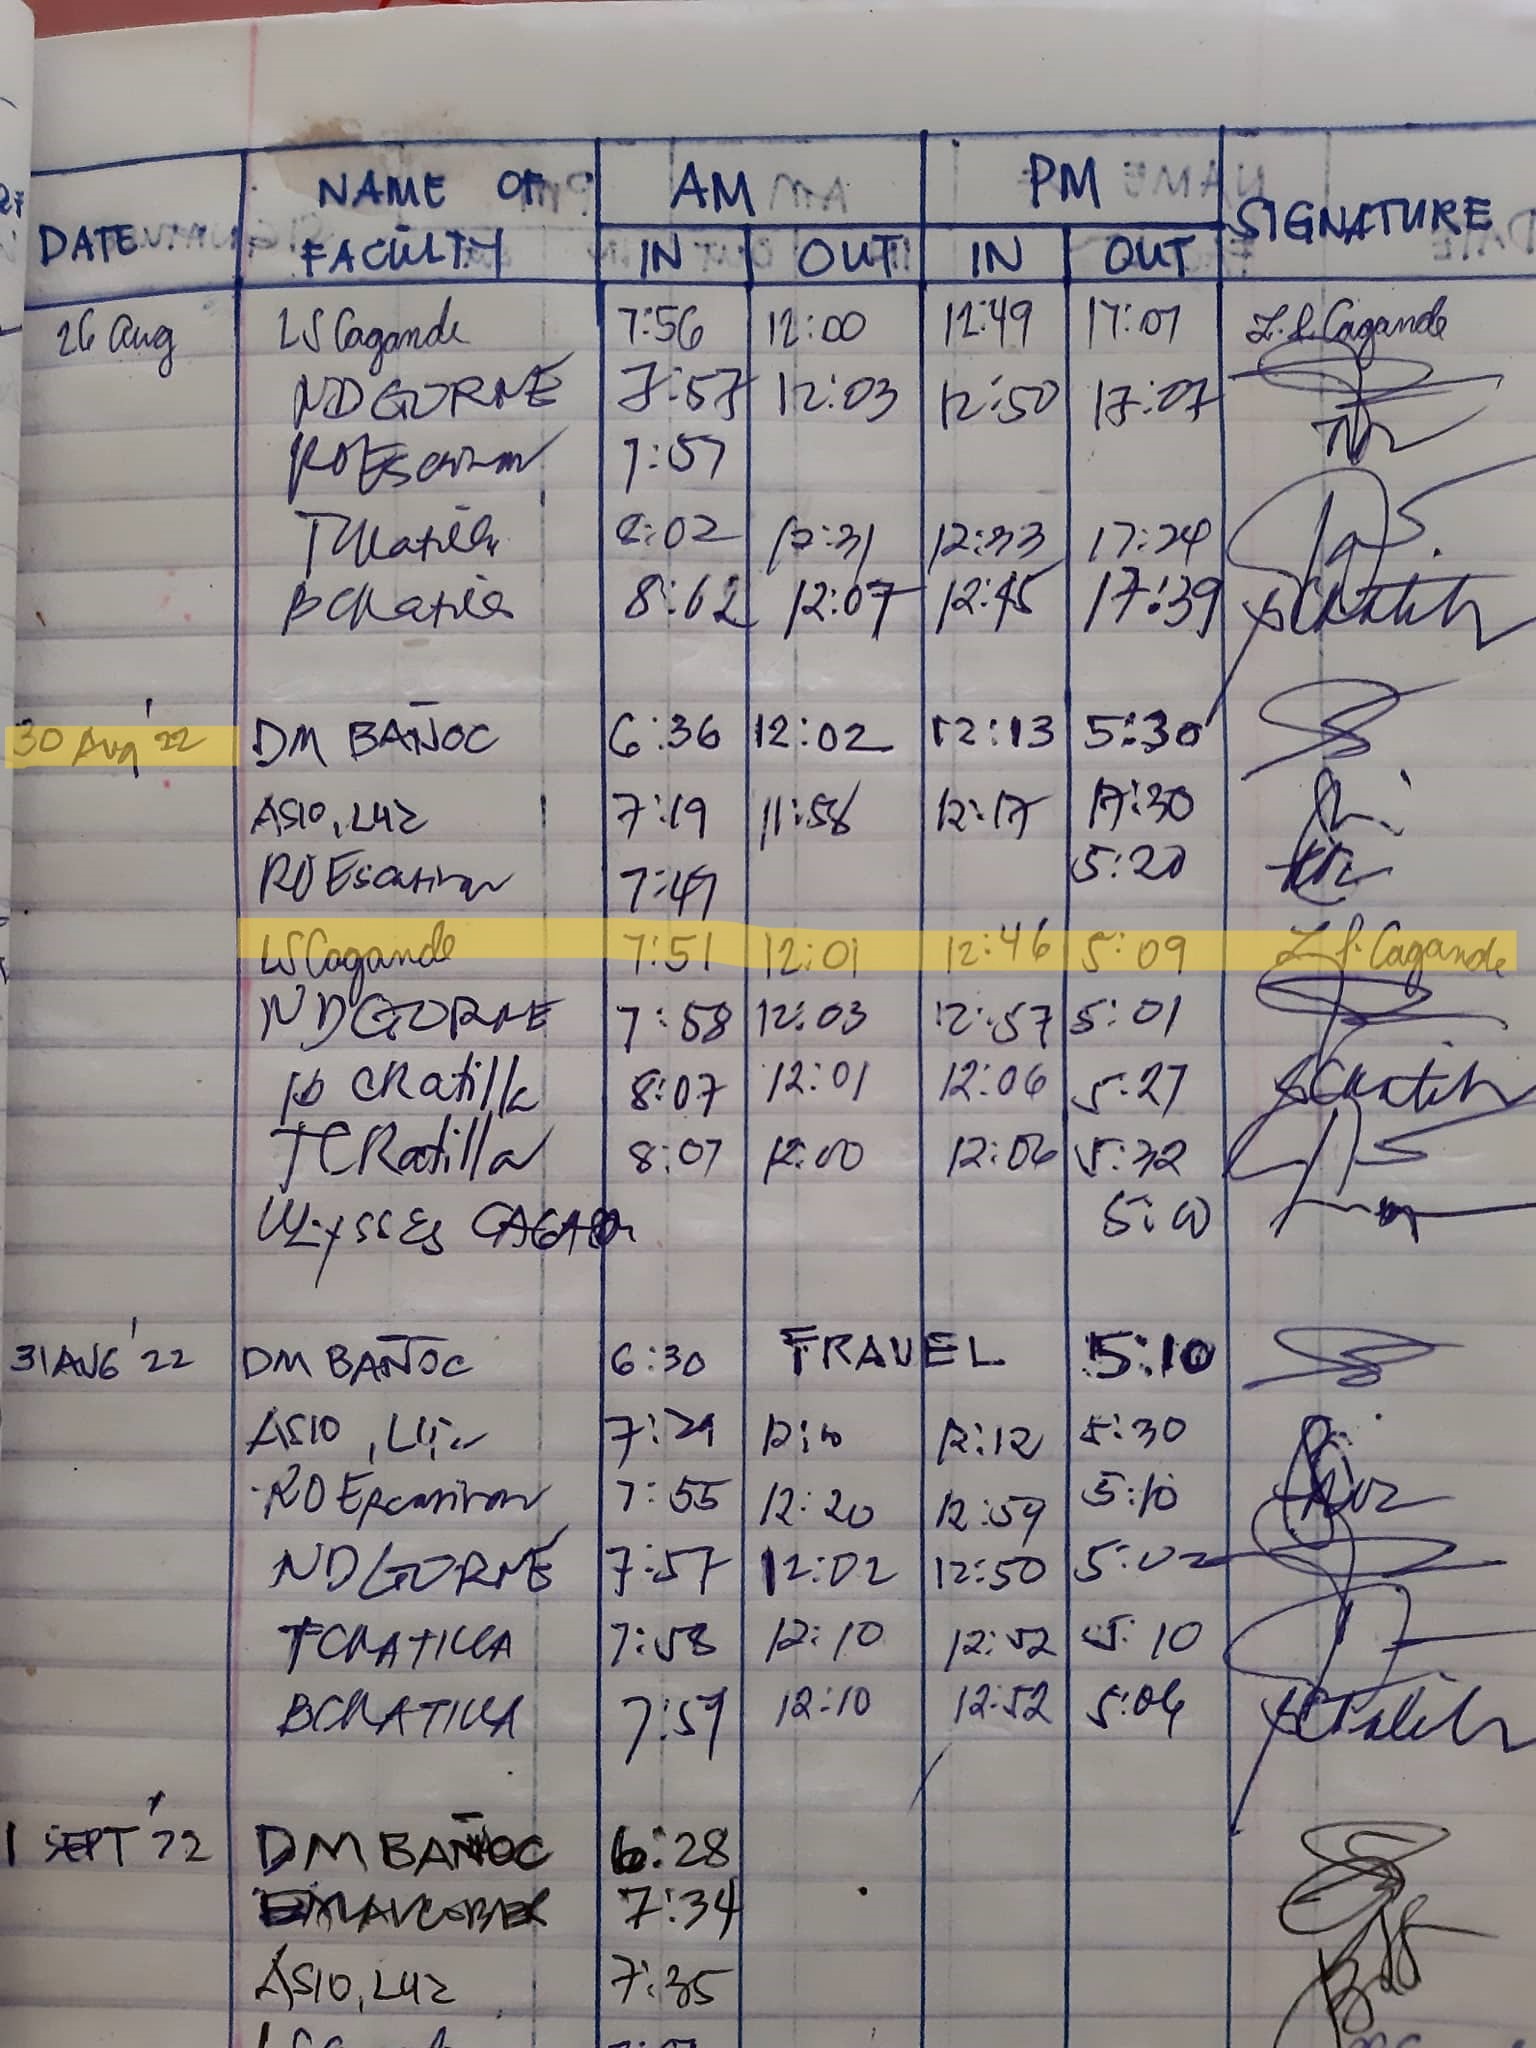 NAME OF AM PM
DATE FACULTY IN OUT IN OUT SIGNATURE
26 Aug LS Cagande 7:56 12:00 12:49 17:07 L. S. Cagande
ND GORNE 7:57 12:03 12:50 17:07
RO Escasinas 7:57
TCRatilla 8:02 12:31 12:33 17:24
BCRatilla 8:02 12:07 12:45 17:39
30 Aug '22 DM BAÑOC 6:36 12:02 12:13 5:30
ASIO, LUZ 7:19 11:58 12:17 17:30
RO Escasinas 7:49 5:20
LS Cagande 7:51 12:01 12:46 5:09 L. S. Cagande
ND GORNE 7:58 12:03 12:57 5:01
B CRatilla 8:07 12:01 12:06 5:27
TCRatilla 8:07 12:00 12:06 5:32
ULYSSES
31 AUG '22 DM BAÑOC 6:30 TRAVEL 5:10
ASIO, Luz 7:29 12:12 5:30
RO Escasinas 7:55 12:20 12:59 5:10
ND GORNE 7:57 12:02 12:50 5:02
TCRATILLA 7:58 12:10 12:52 5:10
BCRATILLA 7:59 12:10 12:52 5:06
1 SEPT '22 DM BAÑOC 6:28
7:34
ASIO, LUZ 7:35